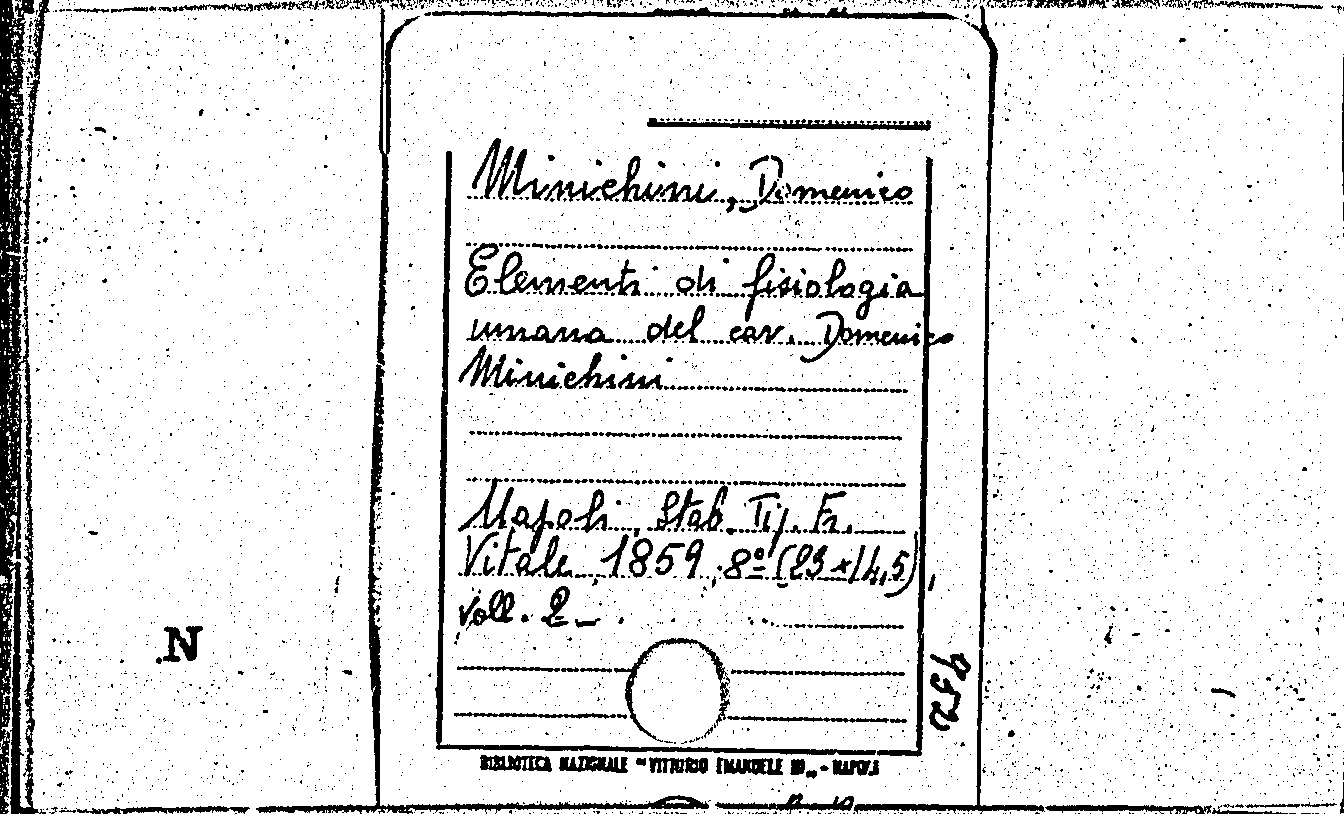 Minichini, Domenico
Elementi di fisiologia
umana del cav. Domenico
Minichini
Napoli, Stab. Tip. Fr.
Vitale, 1859, 8º (23x14,5),
voll. 2_
952
N
BIBLIOTECA NAZIONALE "VITTORIO EMANUELE III„ - NAPOLI